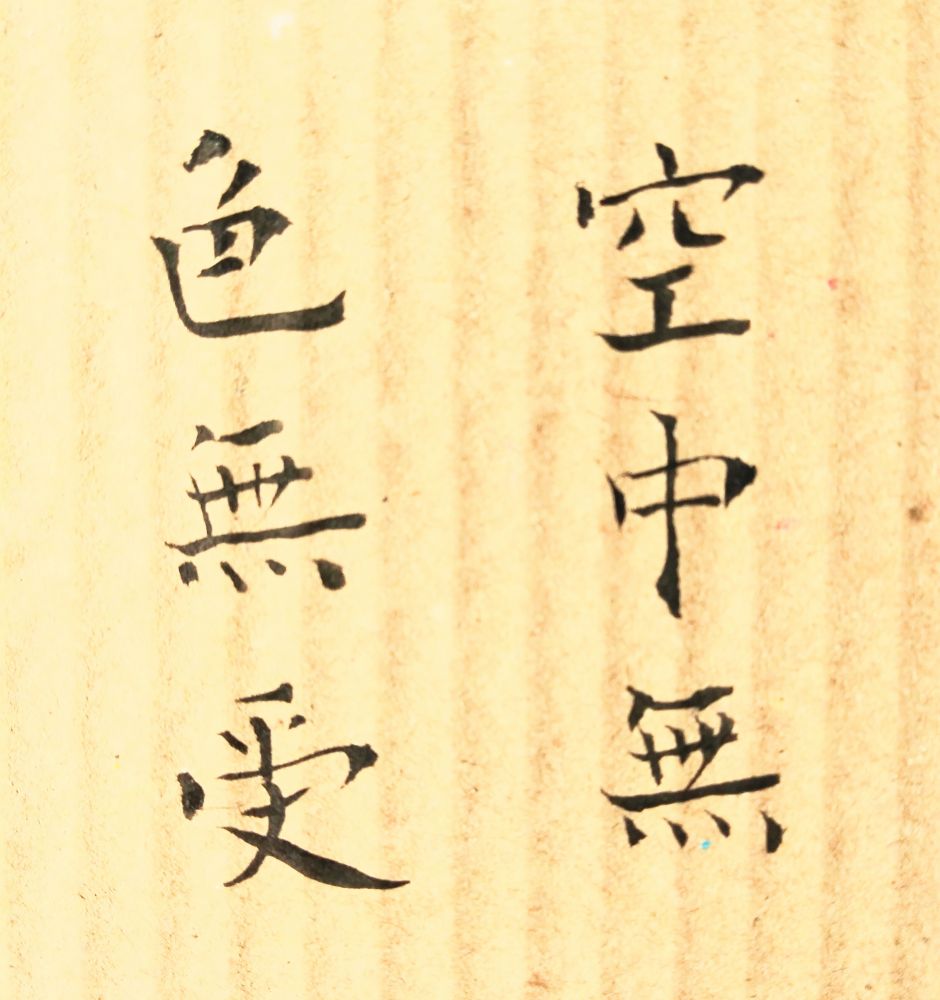 空中無
色無受